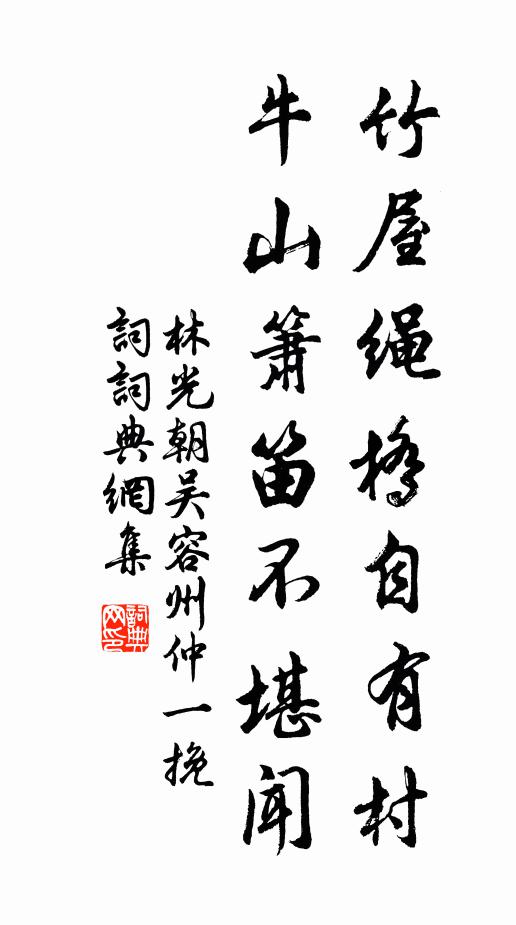 竹屋绳橋自有村
牛山簫笛不堪闻
林光朝吴容州仲一挽
詞詞典網集
詞典
网印